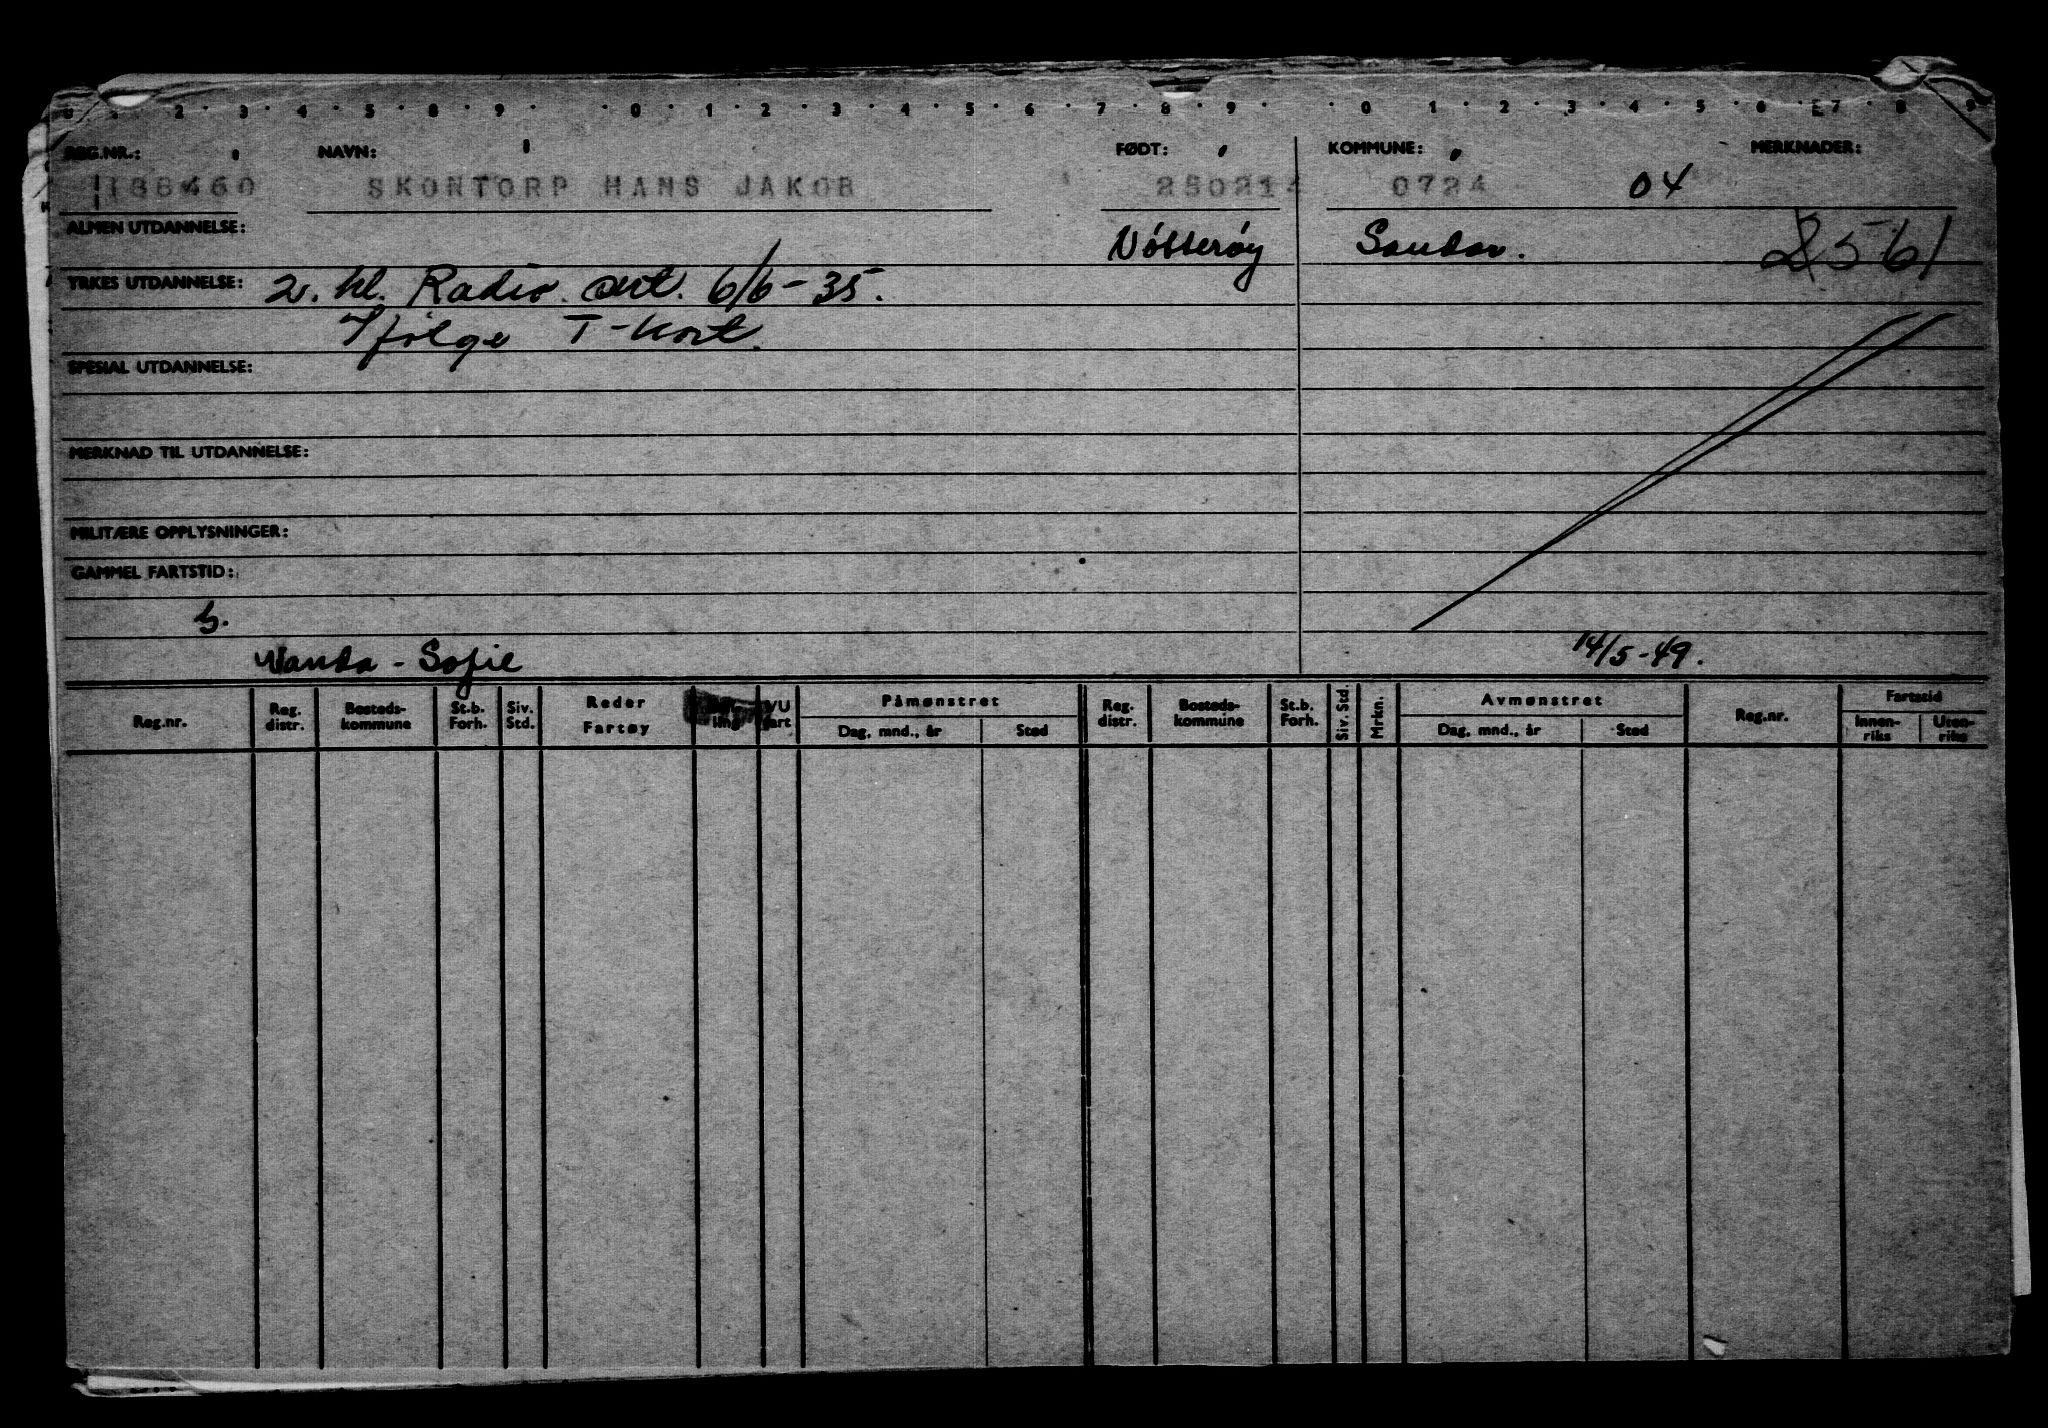 0 2 3 4 5 8 9 0 1 2 3 4 5 6 7 8 9 0 1 2 3 4 5 6 7 8 9
REG.NR.: NAVN: FØDT: KOMMUNE: MERKNADER:
SKONTORP HANS JAKOB 250214 0724 04
ALMEN UTDANNELSE: Nötteröy Sandar. 2561
YRKES UTDANNELSE: 2. kl. Radio. sert. 6/6-35.
Ifölge T-kort.
SPESIAL UTDANNELSE:
MERKNAD TIL UTDANNELSE:
MILITÆRE OPPLYSNINGER:
GAMMEL FARTSTID:
Wanda - Sofie 14/5-49.
Reg.nr. Reg. distr. Bosteds-kommune St.b. Forh. Siv. Std. Reder Fartøy ling VU fart Påmønstret Dag, mnd., år Sted Reg. distr. Bosteds-kommune St.b. Forh. Siv. Std. Mrkn. Avmønstret Dag, mnd., år Sted Reg.nr. Fartstid Innen-riks Uten-riks